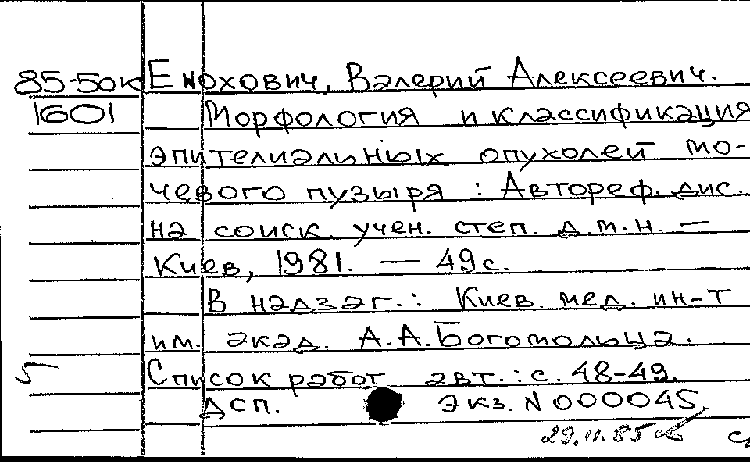 85-50к Енохович, Валерий Алексеевич.
1601 Морфология и классификация
эпителиальных опухолей мо-
чевого пузыря : Автореф. дис.
на соиск. учен. степ. д.м.н. —
Киев, 1981. — 49 с.
В надзаг.: Киев. мед. ин-т
им. акад. А.А. Богомольца.
5 Список работ авт.: с. 48-49.
ДСП. Экз. N 000045
29.11.85